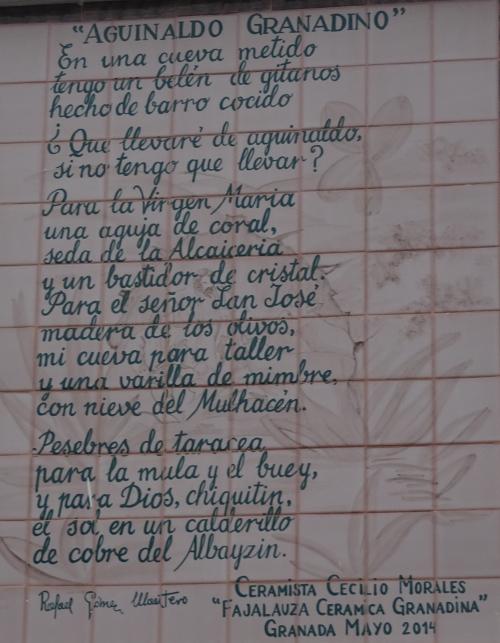 "AGUINALDO GRANADINO"
En una cueva metido
tengo un belén de gitanos
hecho de barro cocido
¿Que llevaré de aguinaldo,
si no tengo que llevar?
Para la Virgen Maria
una aguja de coral,
seda de la Alcaiceria
y un bastidor de cristal.
Para el señor San José
madera de los olivos,
mi cueva para taller
y una varilla de mimbre,
con nieve del Mulhacén.
Pesebres de taracea
para la mula y el buey,
y para Dios, chiquitin,
el sol en un calderillo
de cobre del Albayzin.
Rafael Gómez Montero
CERAMISTA CECILIO MORALES
"FAJALAUZA CERAMICA GRANADINA"
GRANADA MAYO 2014